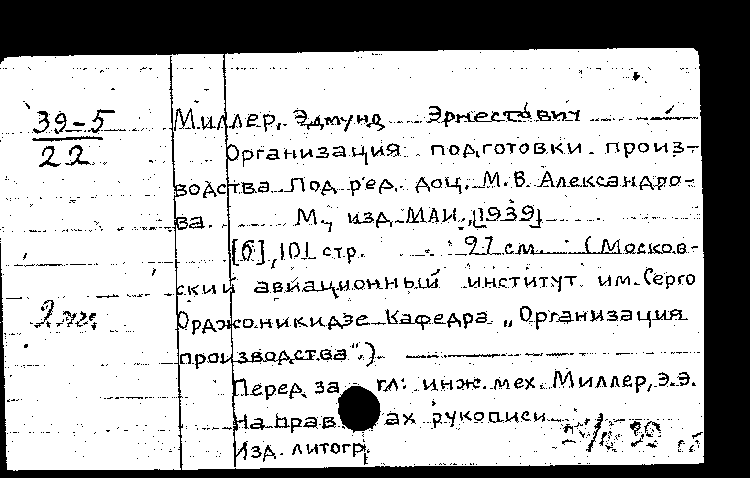 39-5
22
Миллер, Эдмунд Эрнестович
Организация подготовки произ-
водства Под ред. доц. М.В. Александро-
ва. М., изд. МАИ, [1939]
[б], 101 стр. 27 см. (Москов-
ский авиационный институт им. Серго
2 экз.
Орджоникидзе Кафедра „Организация
производства".)
Перед загл: инж. мех. Миллер, Э.Э.
На правах рукописи
Изд. литогр.